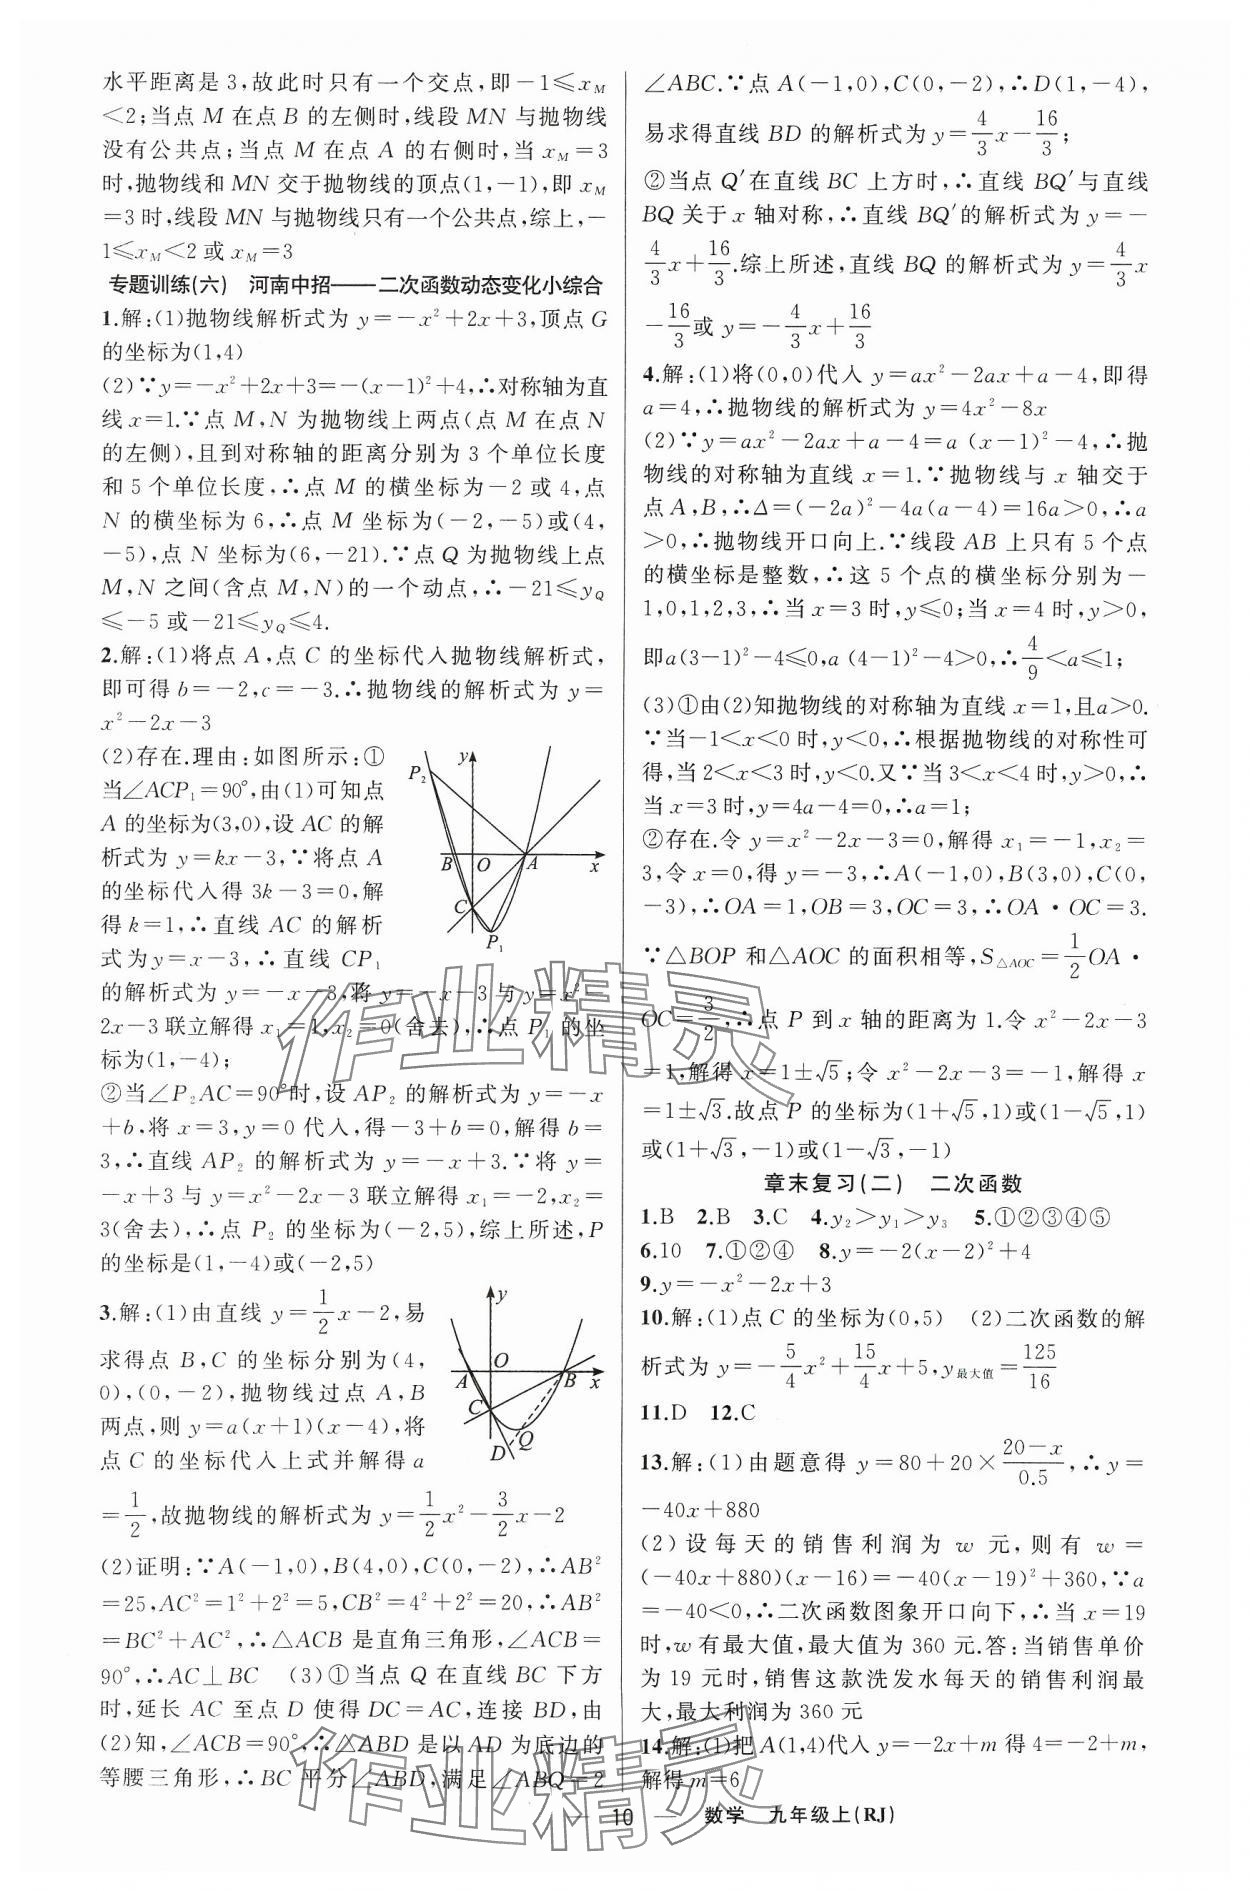 水平距离是3,故此时只有一个交点,即-1≤x_M
<2;当点 M 在点 B 的左侧时,线段 MN 与抛物线
没有公共点;当点 M 在点 A 的右侧时,当 x_M=3
时,抛物线和 MN 交于抛物线的顶点(1,-1),即 x_M
=3时,线段 MN 与抛物线只有一个公共点,综上,-
1≤x_M<2 或 x_M=3
专题训练(六) 河南中招——二次函数动态变化小综合
1.解:(1)抛物线解析式为 y=-x²+2x+3,顶点 G
的坐标为(1,4)
(2)∵y=-x²+2x+3=-(x-1)²+4,∴对称轴为直
线 x=1.∵点 M,N 为抛物线上两点(点 M 在点 N
的左侧),且到对称轴的距离分别为 3 个单位长度
和 5 个单位长度,∴点 M 的横坐标为-2 或 4,点
N 的横坐标为 6,∴点 M 坐标为(-2,-5)或(4,
-5),点 N 坐标为(6,-21).∵点 Q 为抛物线上点
M,N 之间(含点 M,N)的一个动点,∴-21≤y_Q
≤-5 或-21≤y_Q≤4.
2.解:(1)将点 A,点 C 的坐标代入抛物线解析式,
即可得 b=-2,c=-3.∴抛物线的解析式为 y=
x²-2x-3
(2)存在.理由:如图所示:①
当∠ACP₁=90°,由(1)可知点
A 的坐标为(3,0),设 AC 的解
析式为 y=kx-3,∵将点 A
的坐标代入得 3k-3=0,解
得 k=1,∴直线 AC 的解析
式为 y=x-3,∴直线 CP₁
y
P₂
B O A x
C
P₁
的解析式为 y=-x-3,将 y=-x-3 与 y=x²-
2x-3 联立解得 x₁=1,x₂=0(舍去),∴点 P₁ 的坐
标为(1,-4);
②当∠P₂AC=90°时,设 AP₂ 的解析式为 y=-x
+b,将 x=3,y=0 代入,得-3+b=0,解得 b=
3,∴直线 AP₂ 的解析式为 y=-x+3.∵将 y=
-x+3 与 y=x²-2x-3 联立解得 x₁=-2,x₂=
3(舍去),∴点 P₂ 的坐标为(-2,5),综上所述,P
的坐标是(1,-4)或(-2,5)
3.解:(1)由直线 y=1/2x-2,易
求得点 B,C 的坐标分别为(4,
0),(0,-2),抛物线过点 A,B
两点,则 y=a(x+1)(x-4),将
点 C 的坐标代入上式并解得 a
y
O
A B x
C
D Q
=1/2,故抛物线的解析式为 y=1/2x²-3/2x-2
(2)证明:∵A(-1,0),B(4,0),C(0,-2),∴AB²
=25,AC²=1²+2²=5,CB²=4²+2²=20,∴AB²
=BC²+AC²,∴△ACB 是直角三角形,∠ACB=
90°,∴AC⊥BC (3)①当点 Q 在直线 BC 下方
时,延长 AC 至点 D 使得 DC=AC,连接 BD,由
(2)知,∠ACB=90°,∴△ABD 是以 AD 为底边的
等腰三角形,∴BC 平分∠ABD,满足∠ABQ=2
∠ABC.∵点 A(-1,0),C(0,-2),∴D(1,-4),
易求得直线 BD 的解析式为 y=4/3x-16/3;
②当点 Q′在直线 BC 上方时,∴直线 BQ′与直线
BQ 关于 x 轴对称,∴直线 BQ′的解析式为 y=-
4/3x+16/3.综上所述,直线 BQ 的解析式为 y=4/3x
-16/3或 y=-4/3x+16/3
4.解:(1)将(0,0)代入 y=ax²-2ax+a-4,即得
a=4,∴抛物线的解析式为 y=4x²-8x
(2)∵y=ax²-2ax+a-4=a (x-1)²-4,∴抛
物线的对称轴为直线 x=1.∵抛物线与 x 轴交于
点 A,B,∴Δ=(-2a)²-4a(a-4)=16a>0,∴a
>0,∴抛物线开口向上.∵线段 AB 上只有 5 个点
的横坐标是整数,∴这 5 个点的横坐标分别为-
1,0,1,2,3,∴当 x=3 时,y≤0;当 x=4 时,y>0,
即a(3-1)²-4≤0,a (4-1)²-4>0,∴4/9<a≤1;
(3)①由(2)知抛物线的对称轴为直线 x=1,且a>0.
∵当-1<x<0 时,y<0,∴根据抛物线的对称性可
得,当 2<x<3 时,y<0.又∵当 3<x<4 时,y>0,∴
当 x=3 时,y=4a-4=0,∴a=1;
②存在.令 y=x²-2x-3=0,解得 x₁=-1,x₂=
3,令 x=0,得 y=-3,∴A(-1,0),B(3,0),C(0,
-3),∴OA=1,OB=3,OC=3,∴OA·OC=3.
∵△BOP 和△AOC 的面积相等,S△AOC=1/2OA·
OC=3/2,∴点 P 到 x 轴的距离为 1.令 x²-2x-3
=1,解得 x=1±√5;令 x²-2x-3=-1,解得 x
=1±√3.故点 P 的坐标为(1+√5,1)或(1-√5,1)
或(1+√3,-1)或(1-√3,-1)
章末复习(二) 二次函数
1.B 2.B 3.C 4.y₂>y₁>y₃ 5.①②③④⑤
6.10 7.①②④ 8.y=-2(x-2)²+4
9.y=-x²-2x+3
10.解:(1)点 C 的坐标为(0,5) (2)二次函数的解
析式为 y=-5/4x²+15/4x+5,y最大值=125/16
11.D 12.C
13.解:(1)由题意得 y=80+20×(20-x)/0.5,∴y=
-40x+880
(2)设每天的销售利润为 w 元,则有 w=
(-40x+880)(x-16)=-40(x-19)²+360,∵a
=-40<0,∴二次函数图象开口向下,∴当 x=19
时,w 有最大值,最大值为 360 元.答:当销售单价
为 19 元时,销售这款洗发水每天的销售利润最
大,最大利润为 360 元
14.解:(1)把 A(1,4)代入 y=-2x+m 得 4=-2+m,
解得 m=6
— 10 — 数学 九年级上(RJ)
作业精灵
作业精灵